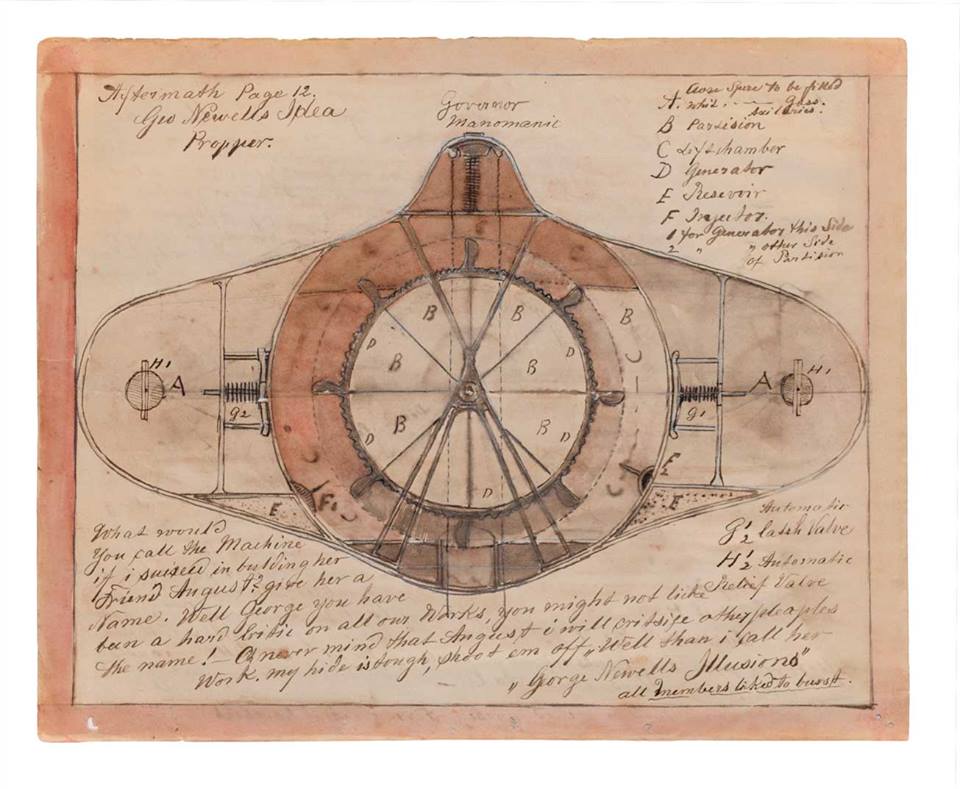 Aftermath Page 12.
Geo Newells Idea
Propper.
Governor
Manomanic
A. to be filled
whit Gass.
B Partision
C Liftchamber
D Generator
E Resevoir
F Injector.
1 for Generator this Side
2 " " other Side
of Partision
C
C
C
B
B
B
B
B
B
B
D
D
D
D
D
H1
A
G2
G1
A
H1
C
C
F1
F2
E
E
Automatic
G 1/2 Valve
H 1/2 Automatic
Relief Valve
What would
You call the Machine
if i suceed in building her
Friend August? give her a
Name. Well George you have
bun a hard Critic on all our Works, you might not licke
the name! — O never mind that August i will critsise other peaples
Work. my hide is tough, shoot em off „Well than i call her
„Gorge Newells Illusions"
all members liked to busst.